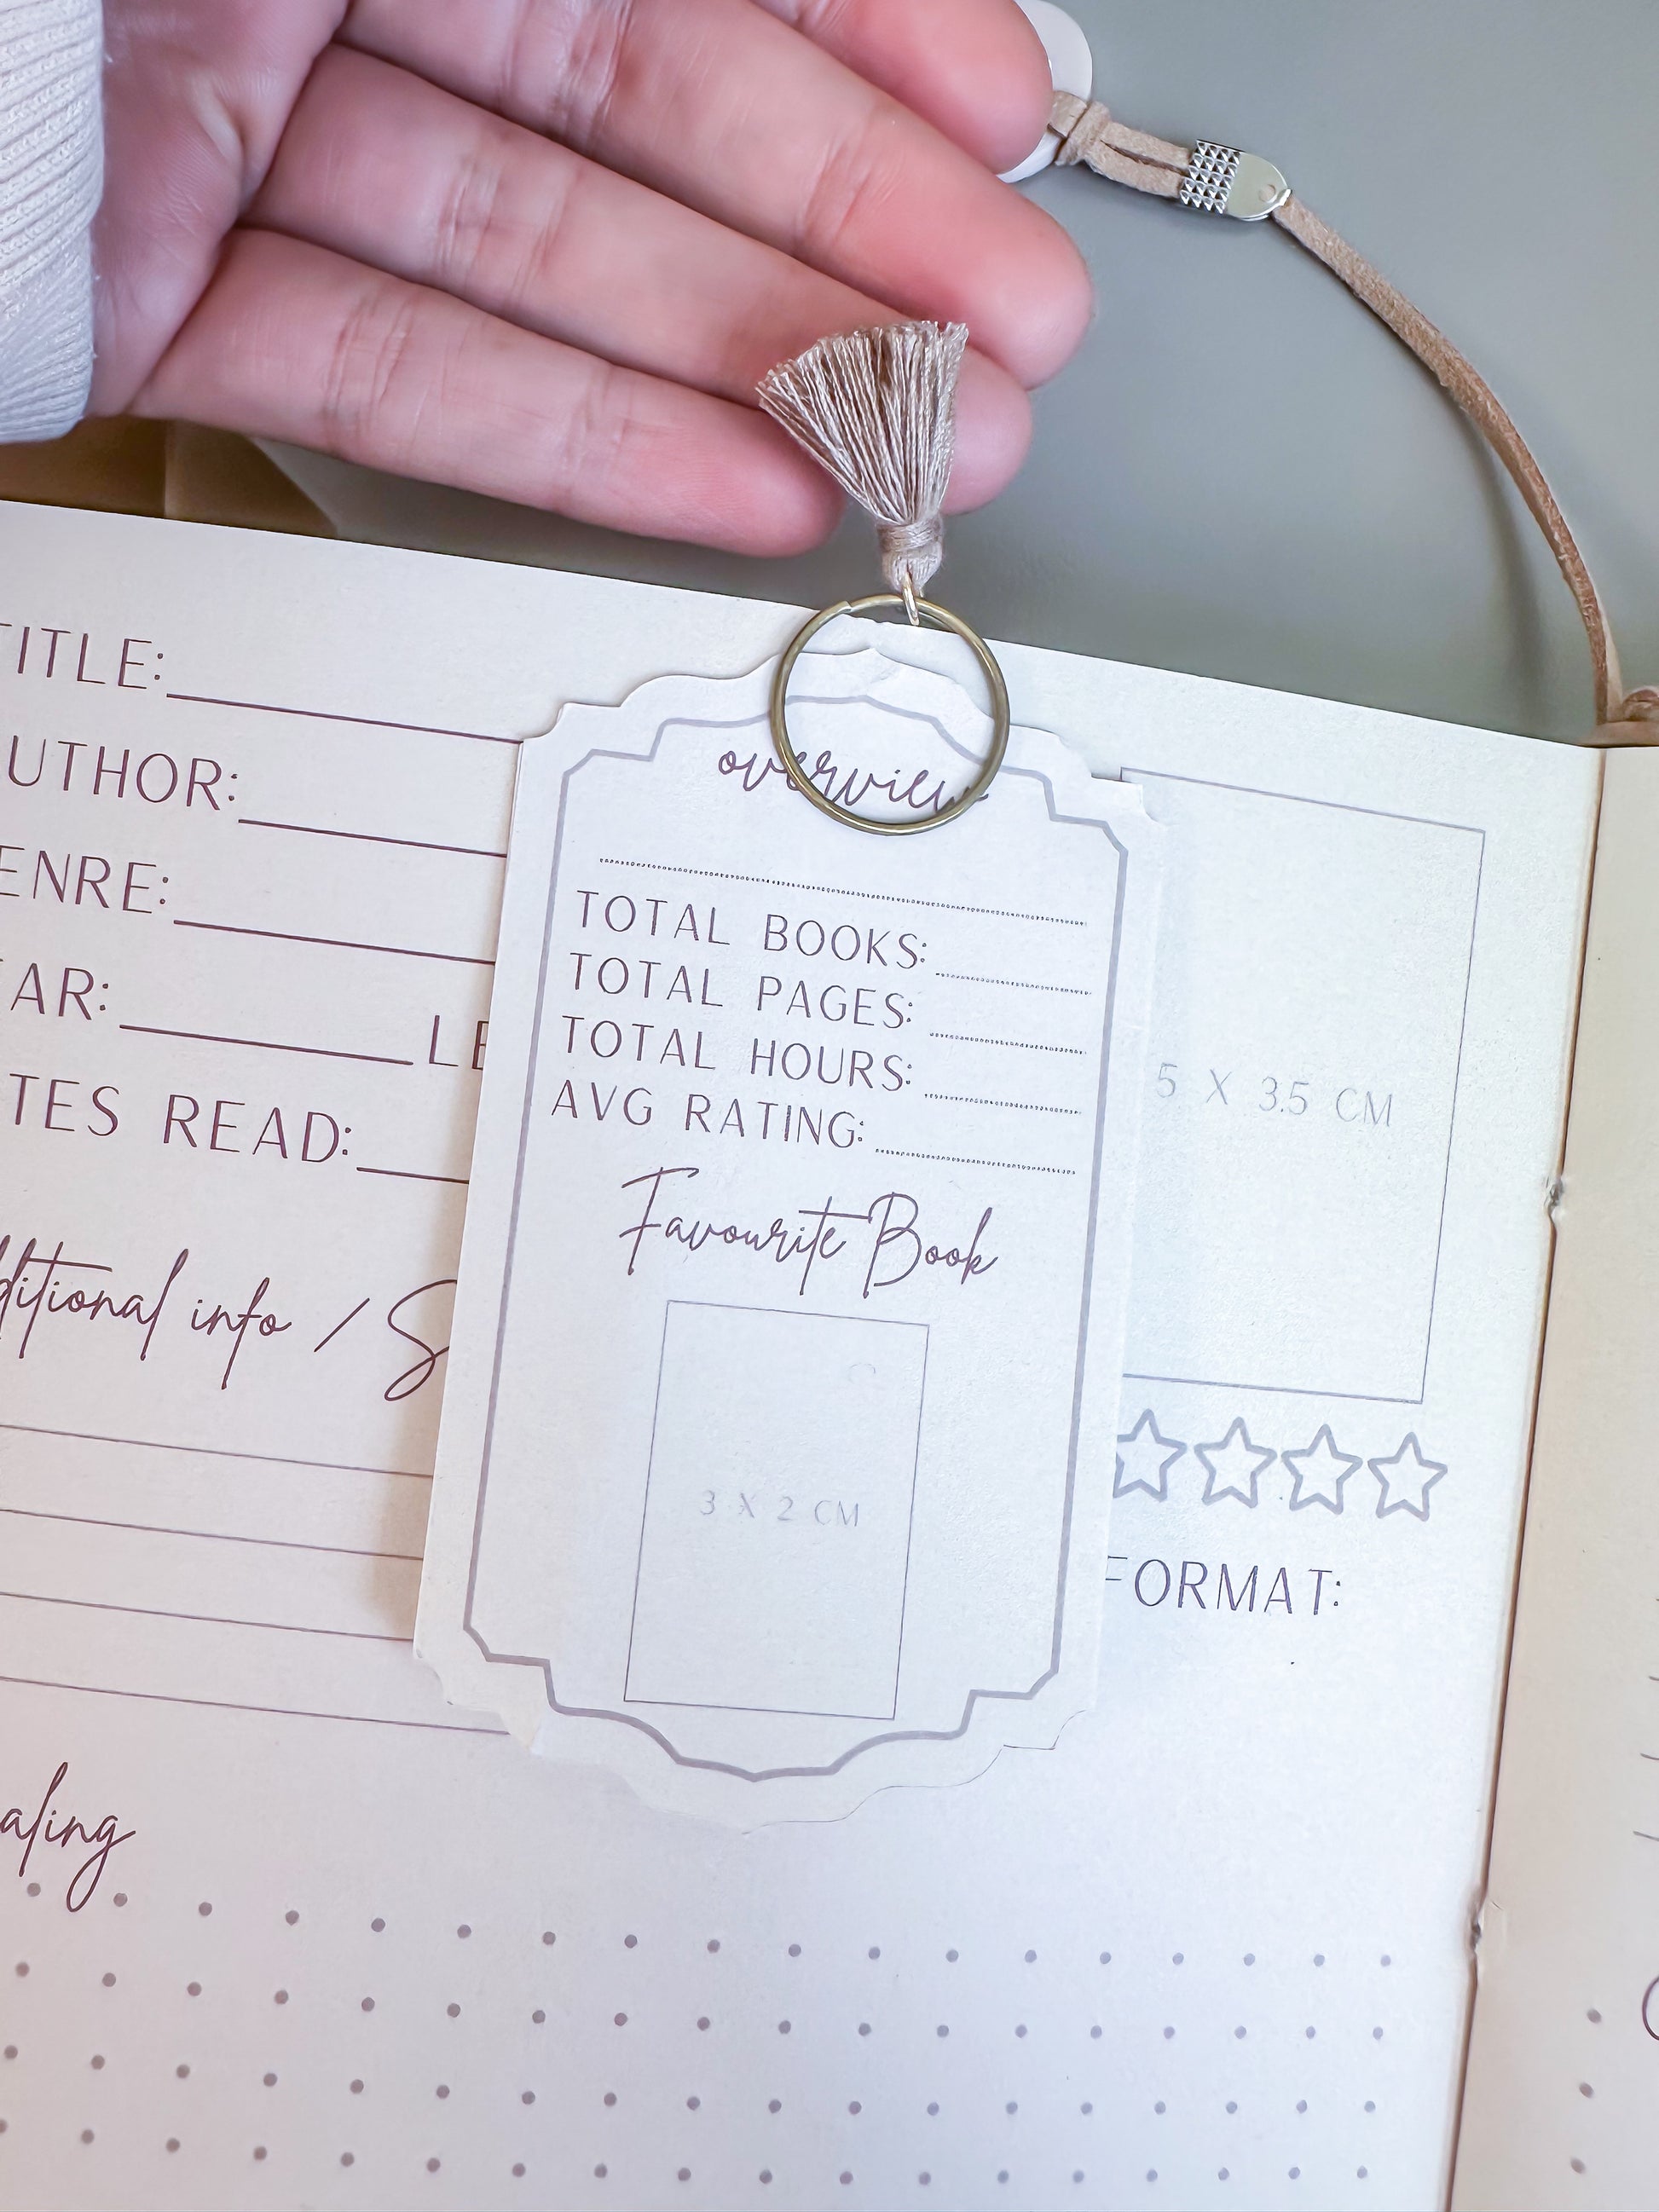 TITLE:
AUTHOR:
ENRE:
EAR:
LE
TES READ:
dditional info / S
aling
overview
TOTAL BOOKS:
TOTAL PAGES:
TOTAL HOURS:
AVG RATING:
Favourite Book
3 X 2 CM
5 X 3.5 CM
FORMAT: